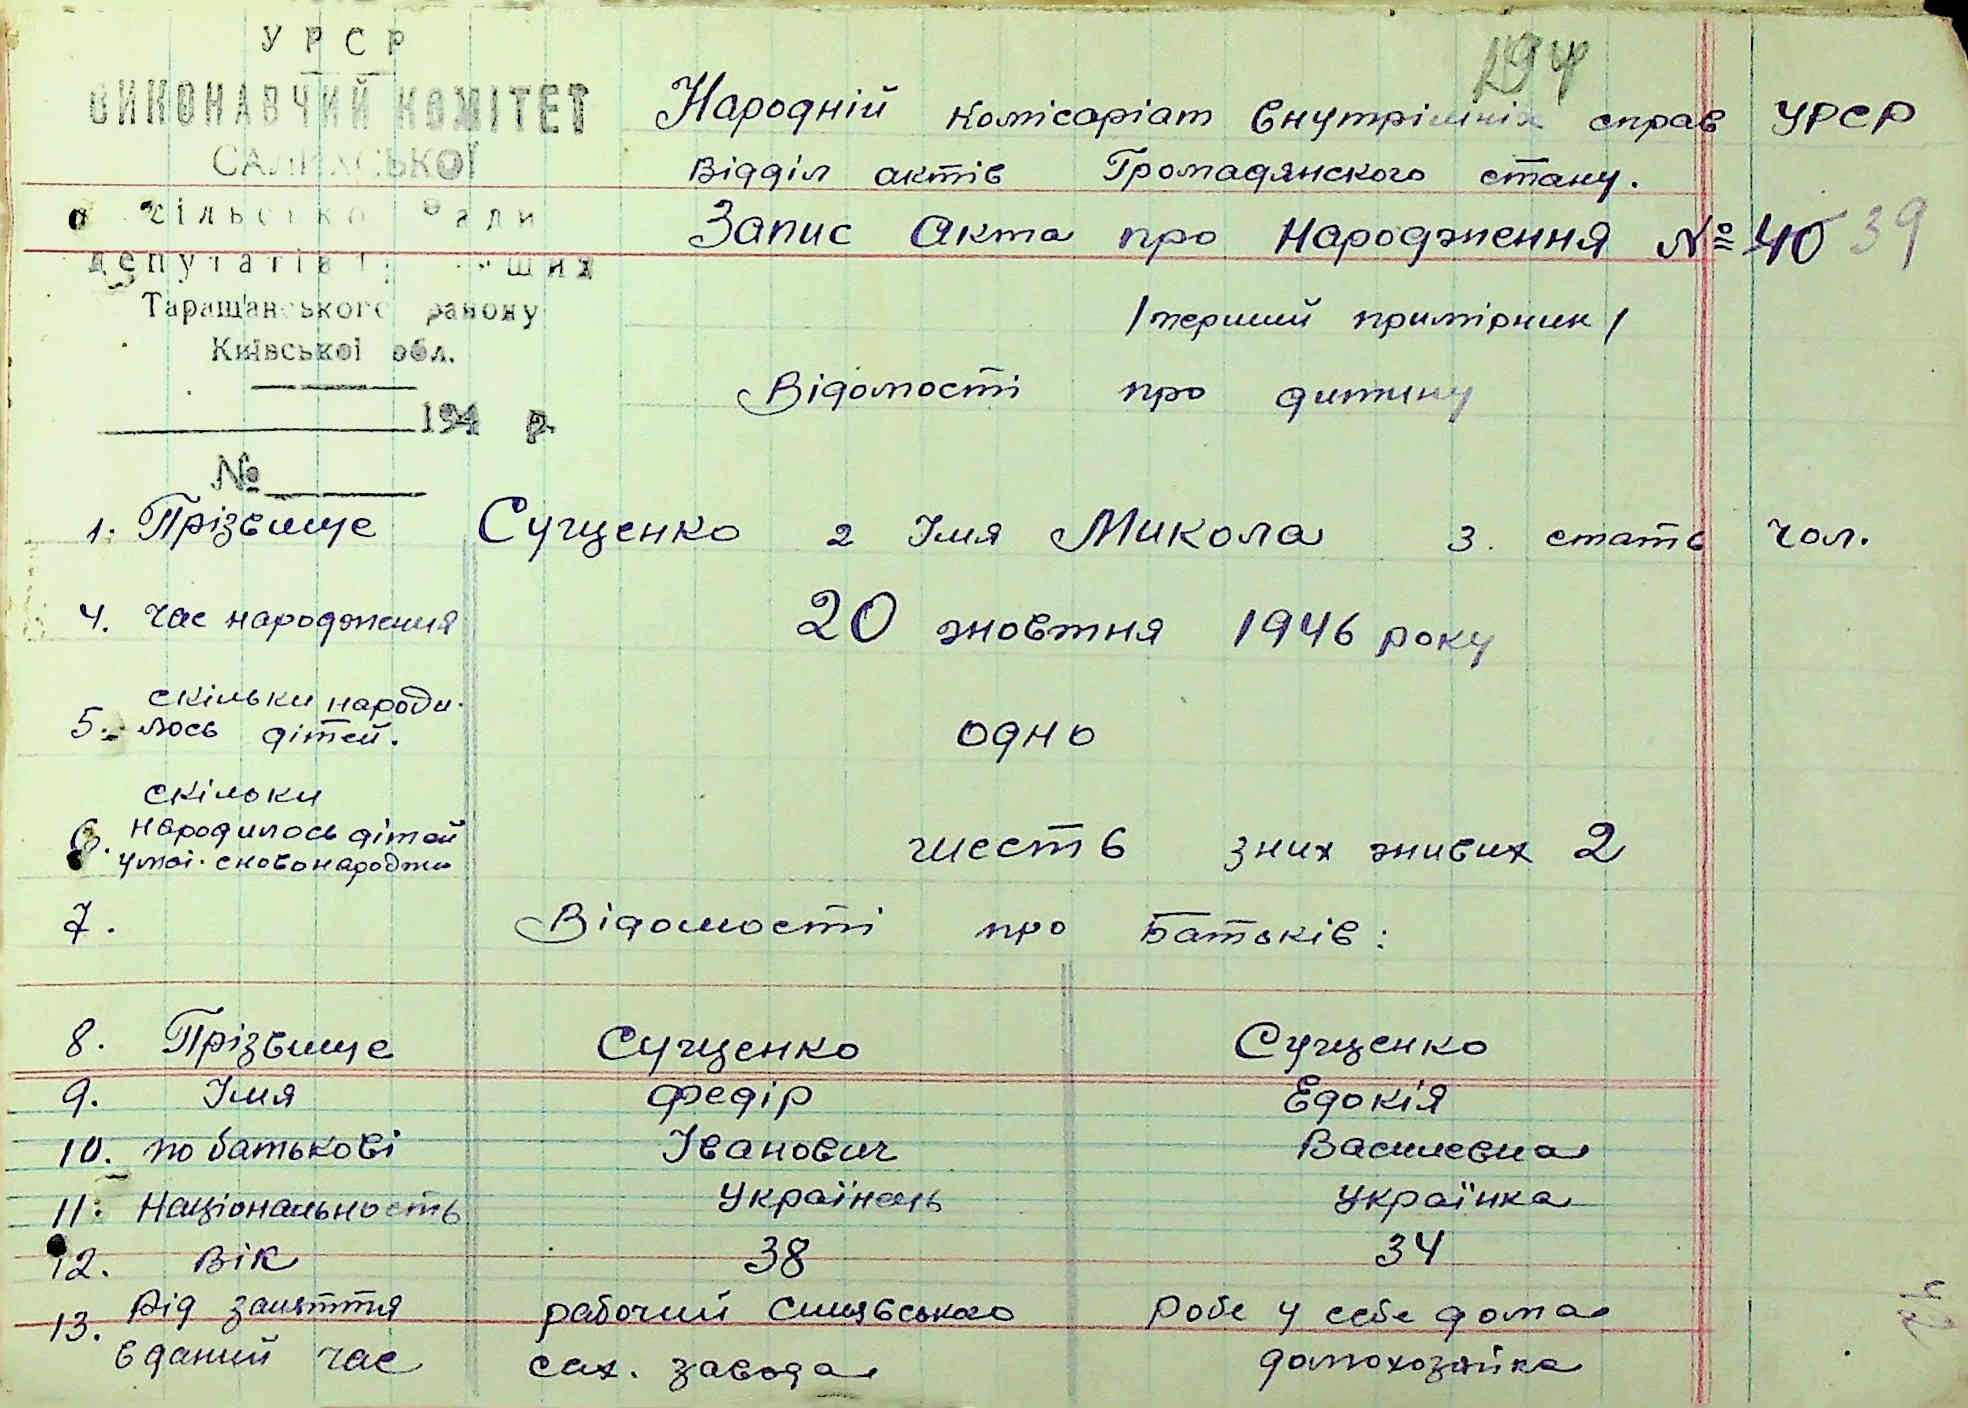 УРСР
ВИКОНАВЧИЙ КОМІТЕТ
депутатів
Таращанського району
Київської обл.
194 р.
№
194
Народній Комісаріат Внутрішніх справ УРСР
Відділ актів Громадянского стану.
Запис Акта про Народження № 40 39
/перший примірник/
Відомості про дитину
1. Прізвище Сущенко 2 Імя Микола 3. стать чол.
4. час народження 20 жовтня 1946 року
5. скільки народи-
лось дітей. одно
6. скільки
народилось дітей
шесть з них живих 2
7. Відомості про Батьків:
8. Прізвище Сущенко Сущенко
9. Імя Федір Едокія
10. по батькові Іванович Василевна
11. Національность Українець Українка
12. Вік 38 34
13. Рід заняття рабочий робе у себе дома
в даний час сах. завода домохозяйка
42